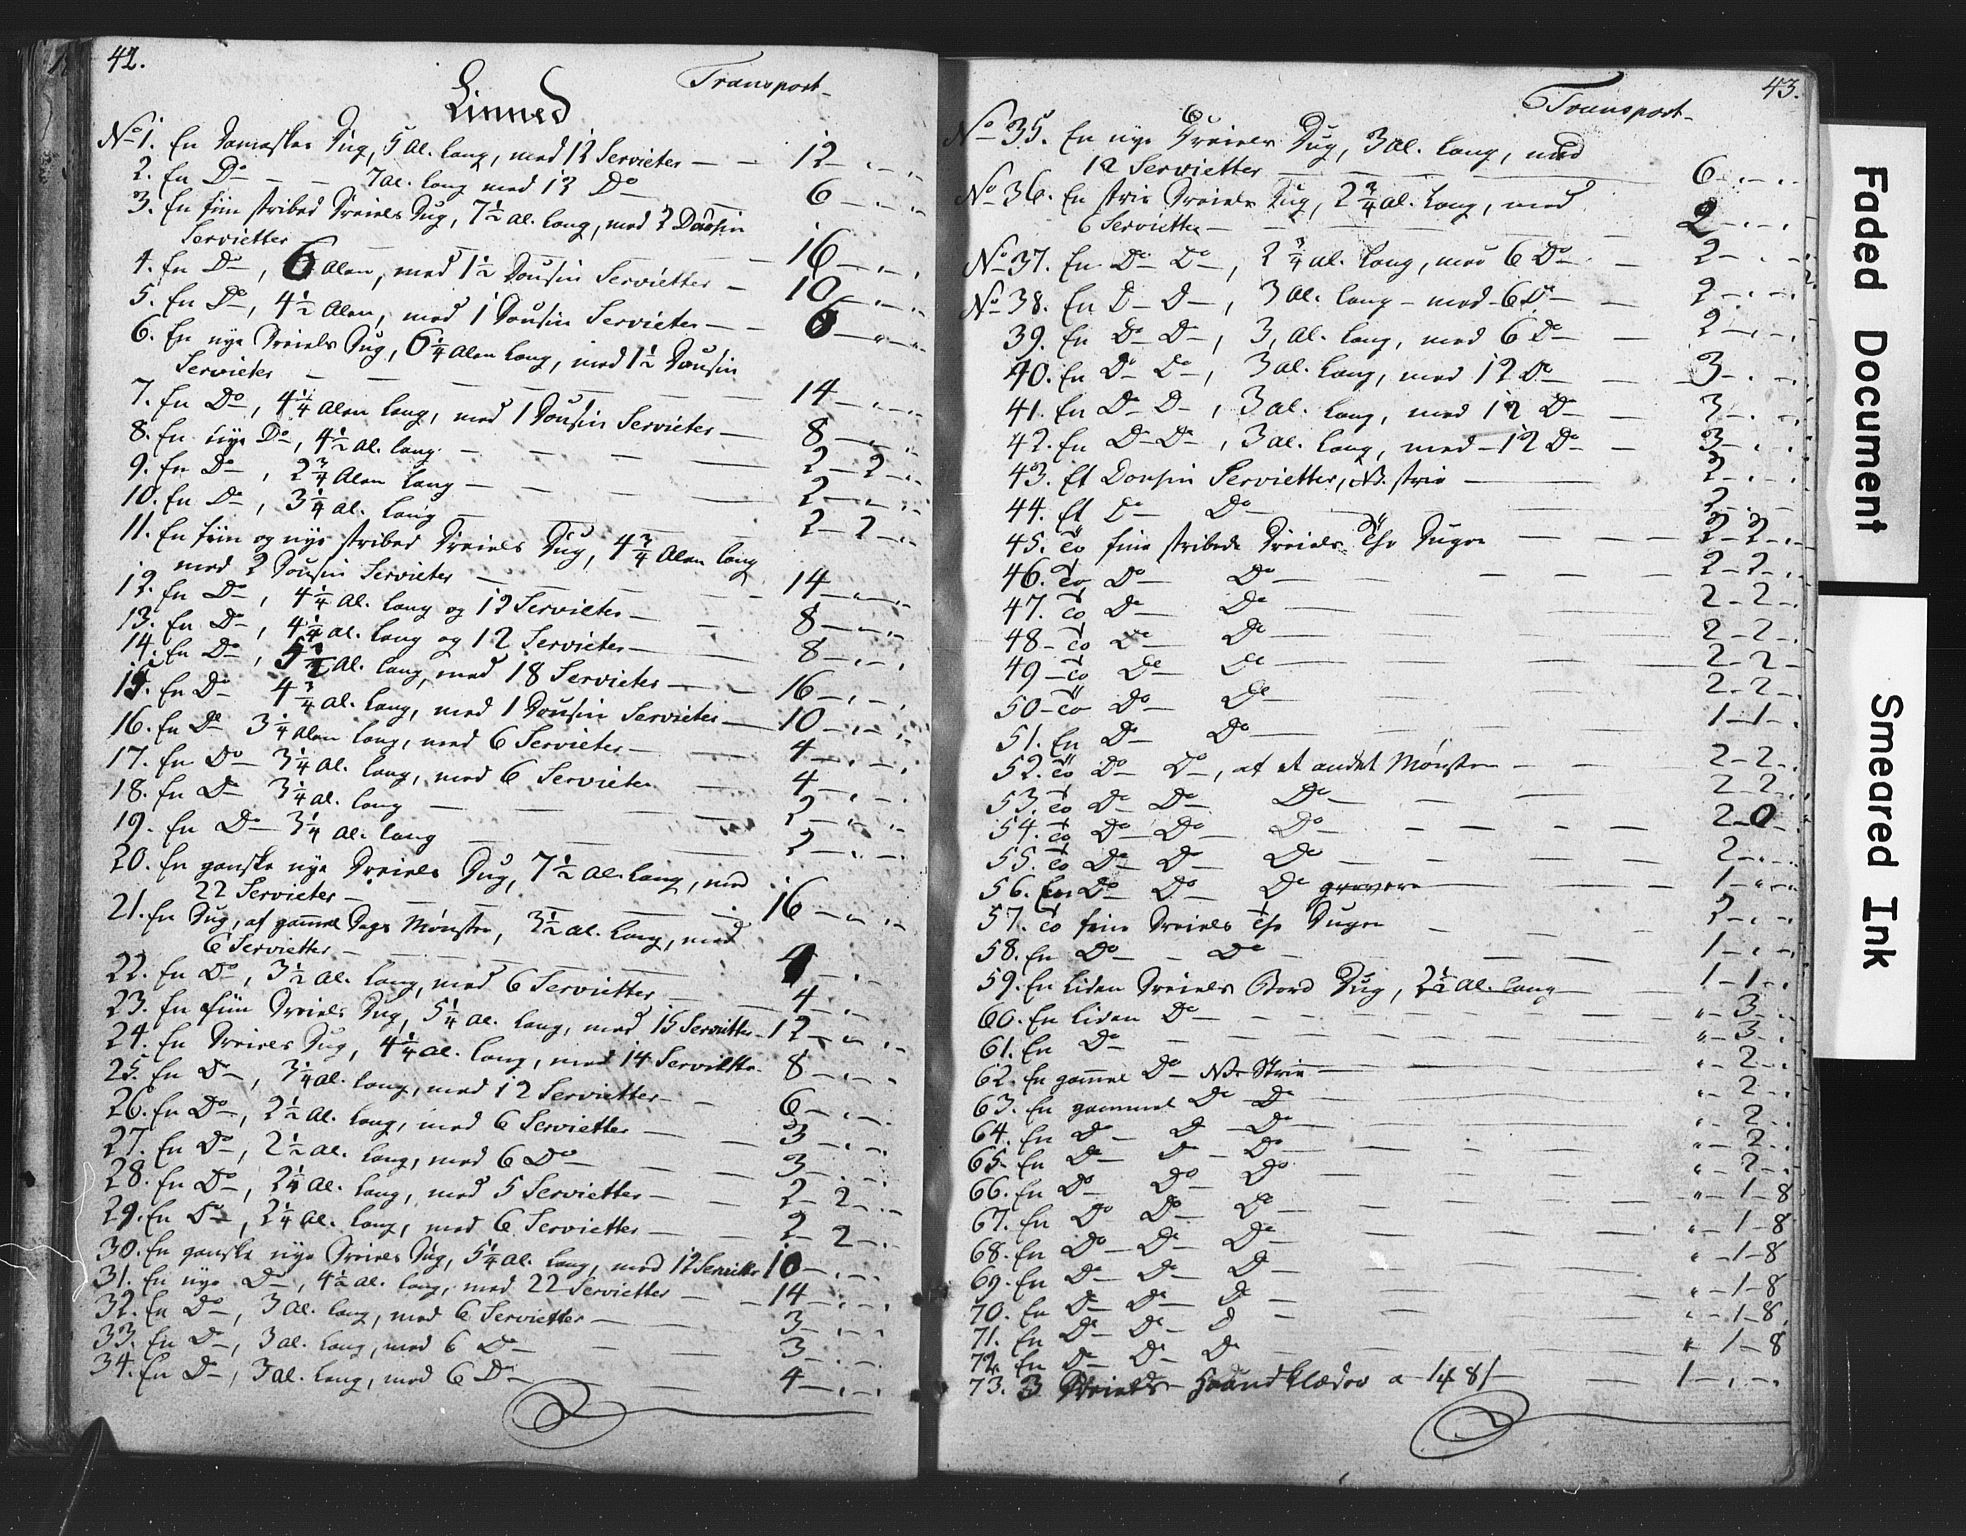 42.
Linned
Transport-
No 1. En Damaskes Dug, 5 Al. lang, med 12 Servieter — — 12 — „ — „
2. En Do — — 7 al. lang med 12 Do — 6 — „ — „
3. En fiin stribed Dreiels Dug, 7½ al. lang, med 2 Dousin
Servietter — — — 16 — „ — „
4. En Do —, 6 Alen, med 1½ Dousin Servietter — 10 — „ — „
5. En Do, 4½ Alen, med 1 Dousin Servieter — — 6 — „ — „
6. En nye Dreiels Dug, 6¼ Alen lang, med 1½ Dousin
Servieter — — — 14 — „ — „
7. En Do —, 4¼ Alen lang, med 1 Dousin Servieter — 8 — „ — „
8. En nye Do —, 4½ al. lang — — — 2 — 2 — „
9. En Do —, 2¾ Alen lang — — — 2 — „ — „
10. En Do —, 3¼ al. lang — — — 2 — 2 — „
11. En fiin og nye stribed Dreiels Dug, 4¾ Alen lang
med 2 Dousin Servieter — — — 14 — „ — „
12. En Do —, 4¼ al. lang og 12 Servieter — — 8 — „ — „
13. En Do —, 4¼ al. lang og 12 Servieter — — 8 — „ — „
14. En Do —, 5½ al. lang, med 18 Servieter — — 16 — „ — „
15. En Do — 4¾ al. lang, med 1 Dousin Servieter — 10 — „ — „
16. En Do 3¼ Alen lang, med 6 Servieter — — 4 — „ — „
17. En Do — 3¼ al. lang, med 6 Servieter — 4 — „ — „
18. En Do — 3¼ al. lang — — — 2 — „ — „
19. En Do — 3¼ al. lang — — — 2 — „ — „
20. En ganske nye Dreiels Dug, 7½ al. lang, med
22 Servieter — — — 16 — „ — „
21. En Dug, af gammel Dags Mønster, 3½ al. lang, med
6 Servietter — — — 4 — „
22. En Do, 3½ al. lang, med 6 Servietter — — 4 — „
23. En fiin Dreiels Dug, 5¼ al. lang, med 15 Servietter — 12 — „ — „
24. En Dreiels Dug, 4¼ al. lang, med 14 Servietter — 8 — „ — „
25. En Do —, 3¼ al. lang, med 12 Servietter — — 6 — „ — „
26. En Do —, 2½ al. lang, med 6 Servietter — — 3 — „ — „
27. En Do —, 2½ al. lang, med 6 Do — — 3 — „ — „
28. En Do —, 2¼ al. lang, med 5 Servietter — — 2 — 2 — „
29. En Do —, 2¼ al. lang, med 6 Servietter — — 2 — 2 — „
30. En ganske nye Dreiels Dug, 5¼ al. lang, med 12 Servietter 10 — „ — „
31. En nye Do —, 4½ al. lang, med 22 Servietter — — 14 — „ — „
32. En Do —, 3 al. lang, med 6 Servietter — — 3 — „ — „
33. En Do —, 3 al. lang, med 6 Do — — 3 — „ — „
34. En Do —, 3 al. lang, med 6 Do — — 4 — „ — „
43.
Transport-
No 35. En nye Dreiels Dug, 3 al. lang, med
12 Servietter — — 6 — „ — „
No 36. En striv Dreiels Dug, 2¾ al. lang, med
6 Servietter — — 2 — „ — „
No 37. En Do Do —, 2¾ al. lang, med 6 Do — — 2 — „ — „
No 38. En D — D —, 3 al. lang — med 6 Do — — 2 — „ — „
39. En Do — Do —, 3, al. lang, med 6 Do — — 2 — „ — „
40. En Do Do —, 3 al. lang, med 12 Do — — 3 — „ — „
41. En Do — D —, 3 al. lang, med 12 Do — — 3 — „ — „
42. En Do — Do, 3 al. lang, med 12 Do — — 3 — „ — „
43. Et Dousin Servietter, NB. striv — — 2 — „ — „
44. Et Do — Do — — 2 — „ — „
45. To fine stribede Dreiels The Duger — — — 2 — 2 — „
46. To Do — Do — — — 2 — 2 — „
47. To Do — Do — — 2 — 2 — „
48 — To Do — Do — — 2 — 2 — „
49 — To Do — Do — — 2 — 2 —
50 — To Do — Do — — 2 — 2 — „
51. En Do — Do — — 1 — 1 — „
52. To Do — Do —, af et andet Mønster — — 2 — 2 — „
53. To Do — Do — Do — — 2 — 2 — „
54. To Do — Do — Do — — 2 — 0 —
55. To Do — Do — Do — — 2 — „ — „
56. En Do — Do — Do grovere — — 1 — „ — „
57. To fine Dreiels The Duger — — 2 — „ — „
58. En Do — Do — — 1 — „ — „
59. En liden Dreiels Bord Dug, 2½ al. lang — — 1 — 1 — „
60. En liden Do — — — „ — 3 — „
61. En Do — — — „ — 3 — „
62. En gammel Do — NB. Striv — — „ — 2 — „
63. En gammel Do Do — — „ — 2 — „
64. En Do — D — Do — — „ — 2 — „
65. En Do — D — Do — — „ — 2 — „
66. En Do — Do — Do — — „ — 2 — „
67. En Do — Do — Do — — „ — 1 — 8
68. En Do — Do — Do — — „ — 1 — 8
69. En Do — Do — Do — — „ — 1 — 8
70. En Do — Do — D — — „ — 1 — 8
71. En Do — Do — D — — „ — 1 — 8
72. En Do — Do — Do — — „ 1 — 8
73. 3 Dreiels Haandklæder a 1 48/ — — 1 — „ — „
Faded Document
Smeared Ink